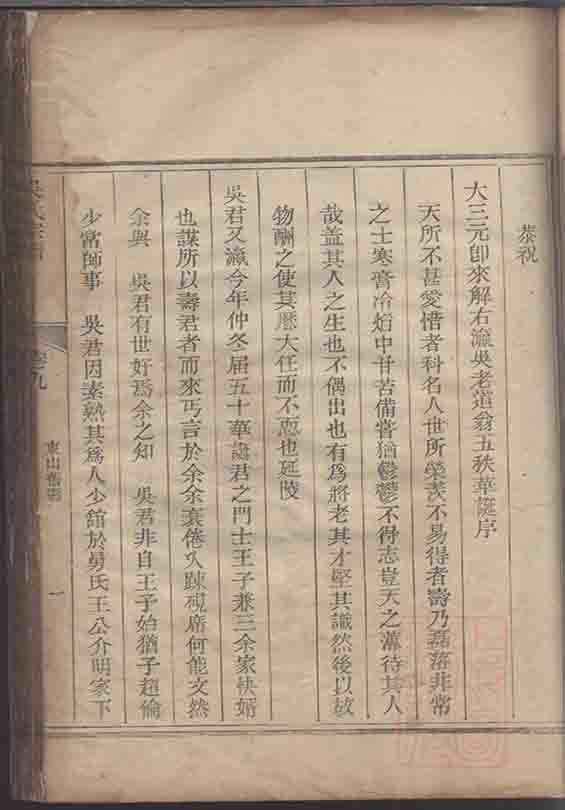 恭祝
大三元卽來解右瀛吳老道翁五秩華誕序
天所不甚愛惜者科名人世所榮羨不易得者壽乃磊落非常
之士寒膏冷焰中甘苦備嘗猶鬱鬱不得志豈天之薄待其人
哉蓋其人之生也不偶出也有爲將老其才堅其識然後以故
物酬之使其歷大任而不恧也延陵
吳君又瀛今年仲冬屆五十華誕君之門士王子兼三余家快婿
也謀所以壽君者而來丐言於余余衰倦久踈硯席何能文然
余與 吳君有世好爲余之知 吳君非自王子始猶子超倫
少當師事 吳君因素熟其爲人少館於舅氏王公介明家下
吳氏宗譜
卷九
東山舊彩
一